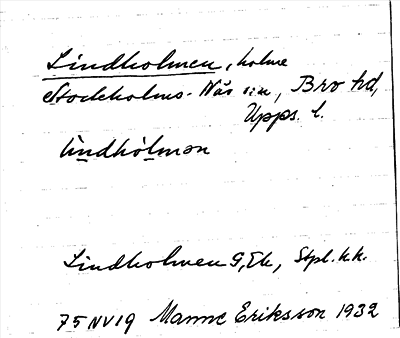 Lindholmen, holme
Stockholms-Näs sn, Bro hd,
Upps. l.
lìndhòlmən
Lindholmen G, Ek, Stpl. kk.
75 NV19 Manne Eriksson 1932